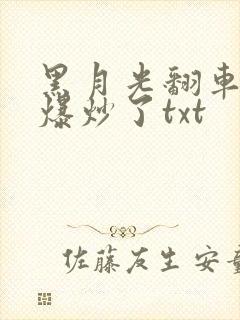 黑月光翻車
爆炒了txt
佐藤友生 安童